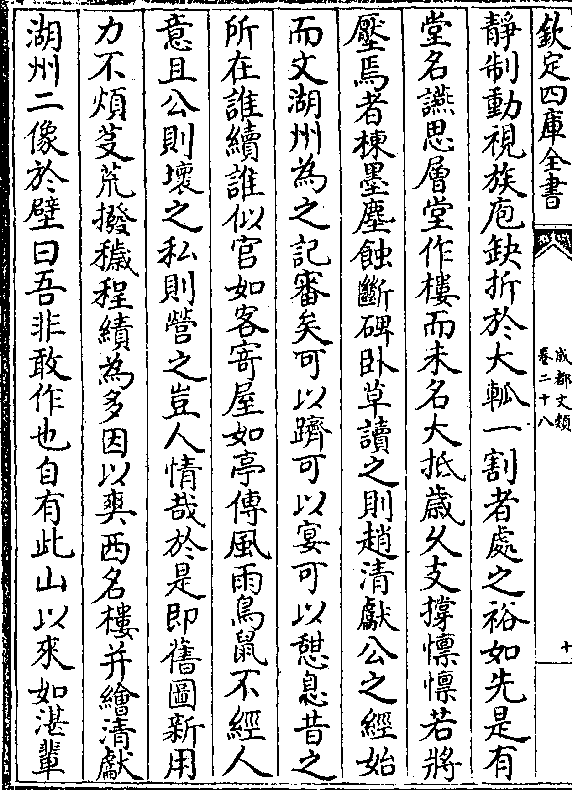 欽定四庫全書
成都文類
卷二十八
十
靜制動視族庖缺折於大軱一割者處之裕如先是有
堂名讌思層堂作樓而未名大抵歲久支撐懍懍若將
壓焉者棟墨塵蝕斷碑卧草讀之則趙清獻公之經始
而文湖州為之記審矣可以躋可以宴可以憇息昔之
所在誰續誰似官如客寄屋如亭傳風雨鳥鼠不經人
意且公則壞之私則營之豈人情哉於是即舊圖新用
力不煩芟荒撥穢程績為多因以爽西名樓并繪清獻
湖州二像於壁曰吾非敢作也自有此山以來如湛輩